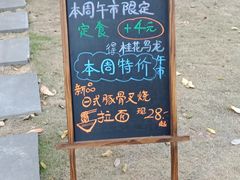 本周午市限定
定食 +4元
得桂花乌龙
本周特价午市
新品
日式豚骨叉烧
拉面 现28.-